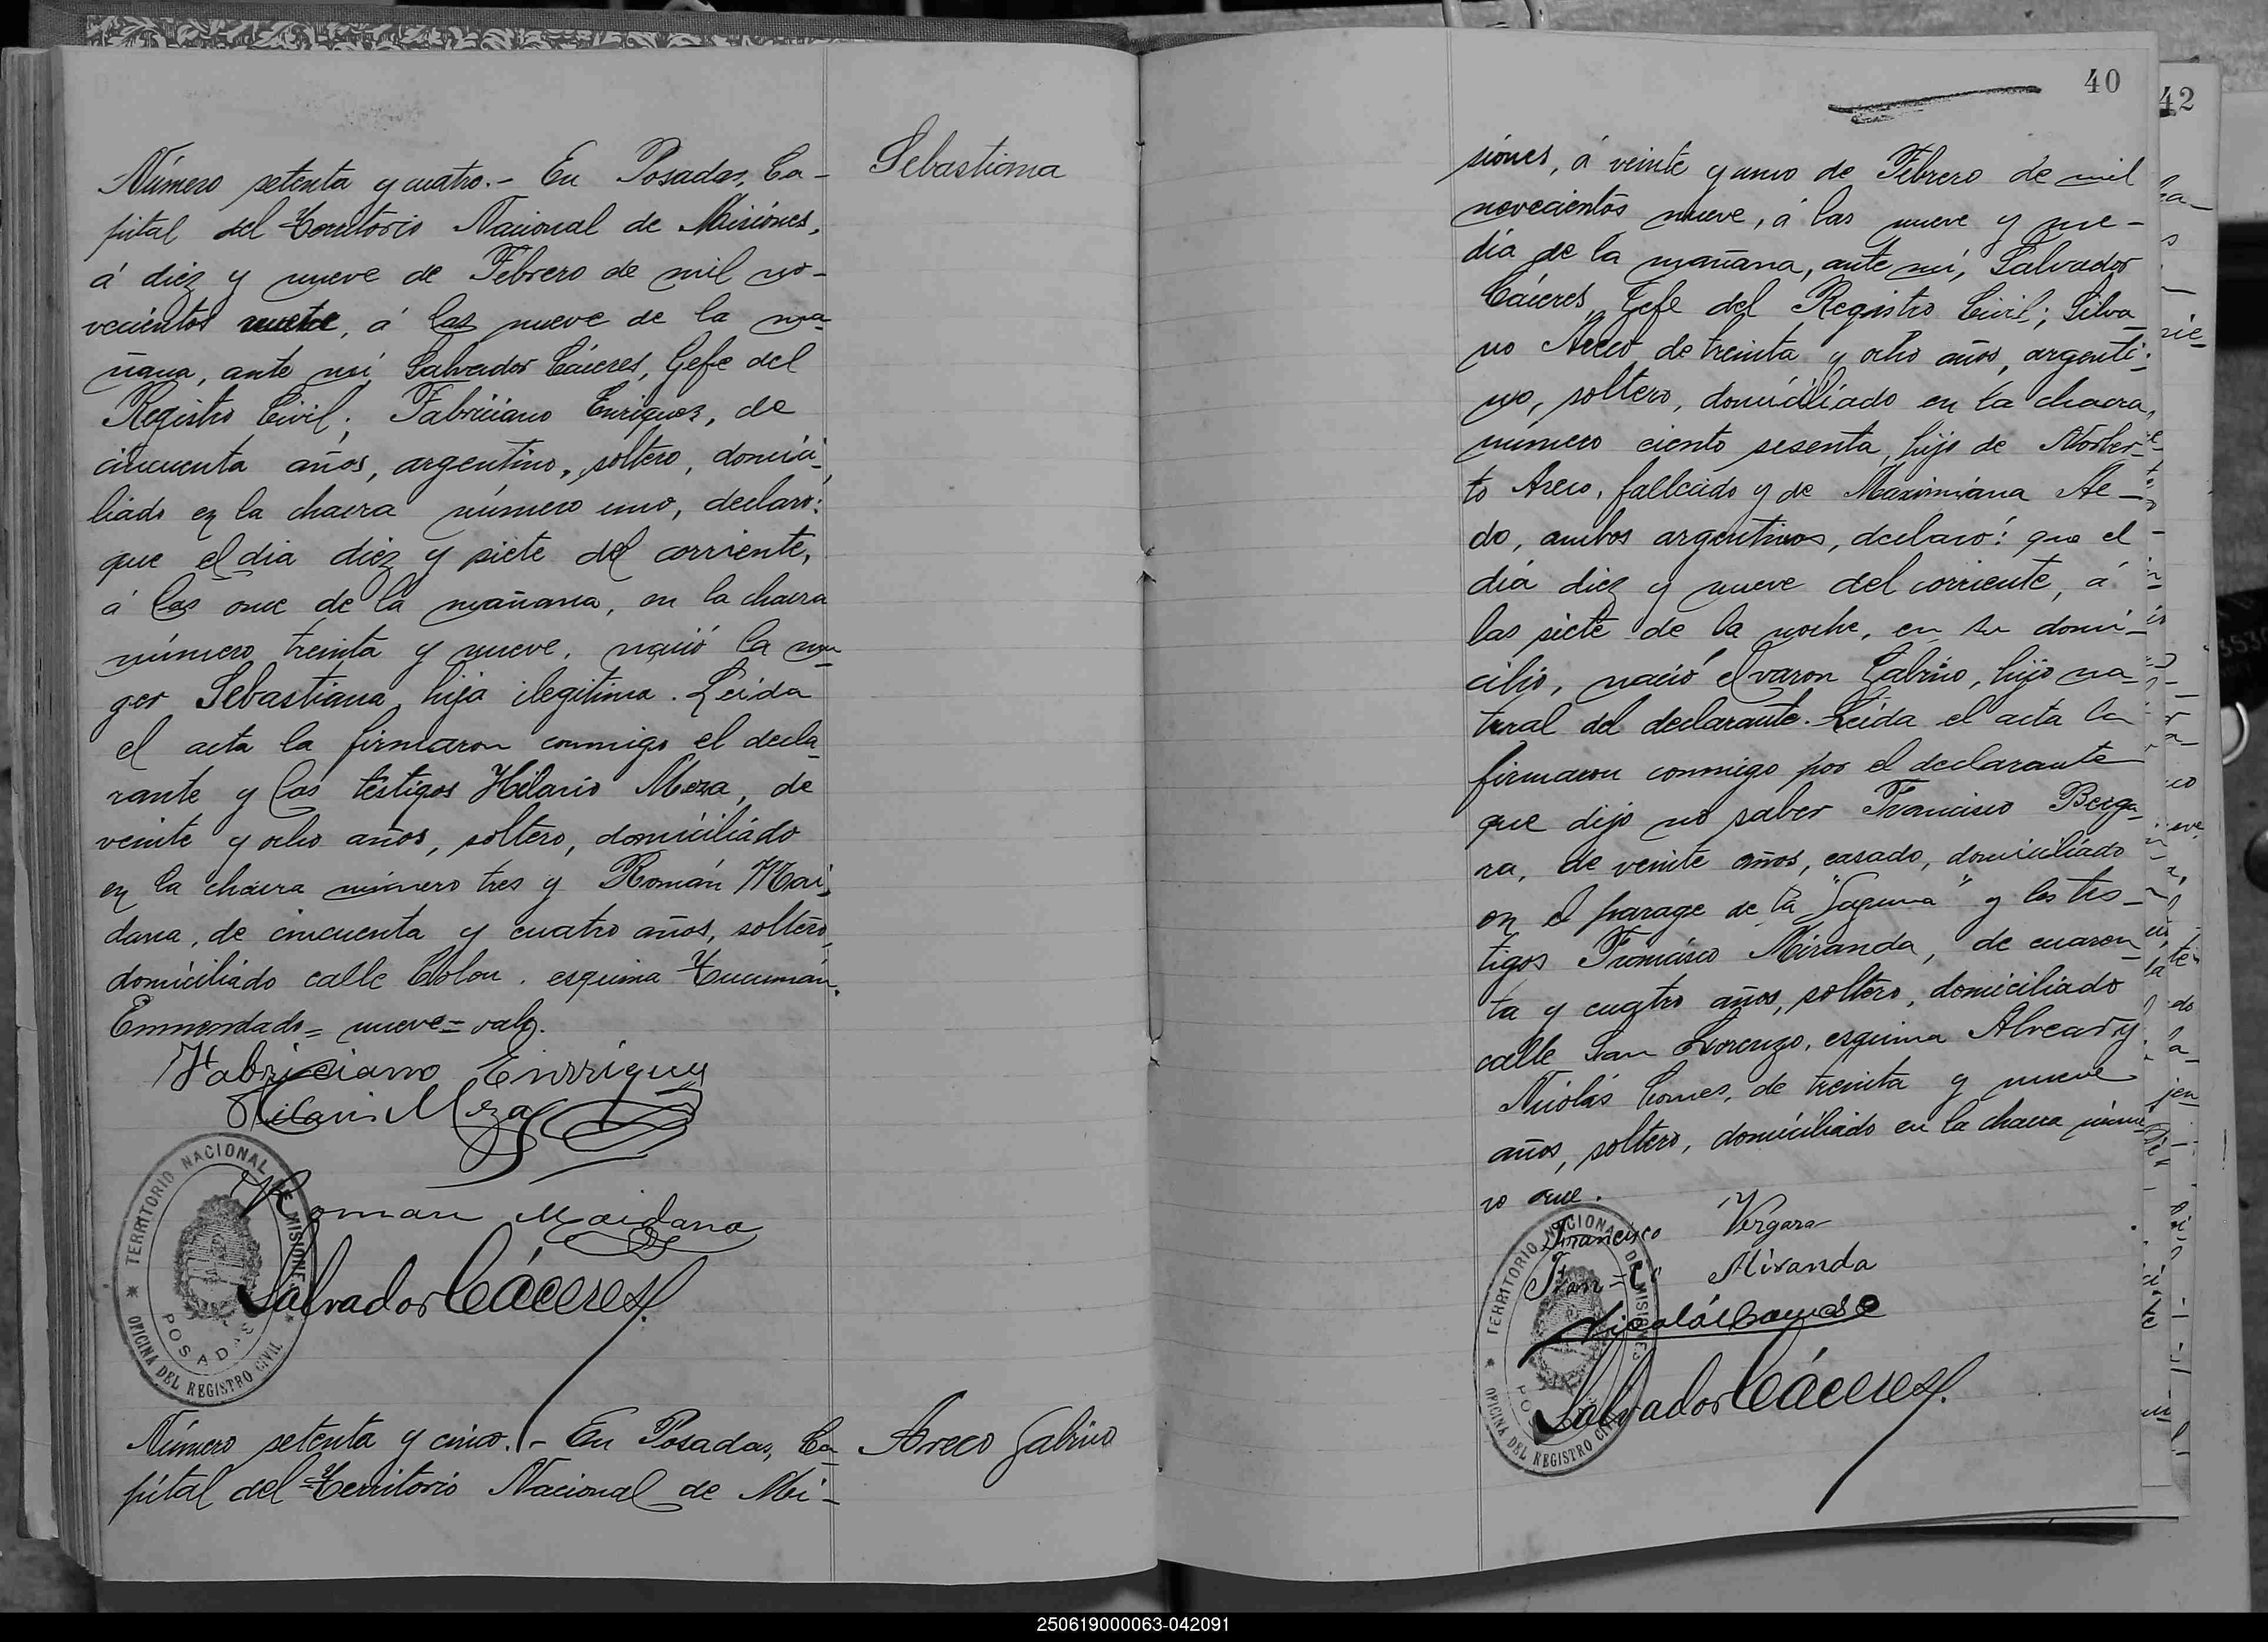 Número setenta y cuatro.- En Posadas, Ca-
pital del Territorio Nacional de Misiónes,
á diez y nueve de Febrero de mil no-
vecientos nueve, á las nueve de la ma-
ñana, ante mí, Salvador Cáceres, Gefe del
Registro Civil; Fabriciano Enriquez, de
cincuenta años, argentino, soltero, domici-
liado en la chacra número uno, declaró:
que el dia diez y siete del corriente,
á las once de la mañana, en la chacra
número treinta y nueve, nació la mu-
ger Sebastiana hija ilegitima. Leida
el acta la firmaron conmigo el decla-
rante y los testigos Hilario Meza, de
veinte y ocho años, soltero, domiciliado
en la chacra número tres y Román Mai-
dana, de cincuenta y cuatro años, soltero,
domiciliado calle Colon, esquina Tucumán.
Enmendado= nueve= vale.
Fabriciano Enrriquez
Hilario Meza
Roman Maidana
Salvador Cáceres.
TERRITORIO NACIONAL DE MISIONES
POSADAS
OFICINA DEL REGISTRO CIVIL
Número setenta y cinco.- En Posadas, Ca-
pital del Territorio Nacional de Mi-
Sebastiana
Areco Gabino
40
siones, á veinte y uno de Febrero de mil
novecientos nueve, á las nueve y me-
dia de la mañana, ante mí, Salvador
Cáceres, Gefe del Registro Civil; Silva-
no Areco, de treinta y ocho años, argenti-
no, soltero, domiciliado en la chacra,
número ciento sesenta, hijo de Norber-
to Areco, fallecido y de Maximiana Ae-
do, ambos argentinos, declaró: que el
dia diez y nueve del corriente, á
las siete de la noche, en su domi-
cilio, nació el varon Gabino, hijo na-
tural del declarante. Leida el acta la
firmaron conmigo por el declarante
que dijo no saber Francisco Berga-
ra, de veinte años, casado, domiciliado
en el parage de la "Laguna" y los tes-
tigos Francisco Miranda, de cuaren-
ta y cuatro años, soltero, domiciliado
calle San Lorenzo, esquina Alvear y
Nicolás Gomes, de treinta y nueve
años, soltero, domiciliado en la chacra núme-
ro once.
Francisco Vergara
Fran=co Miranda
Salvador Cáceres.
TERRITORIO NACIONAL DE MISIONES
OFICINA DEL REGISTRO CIVIL
42
250619000063-042091